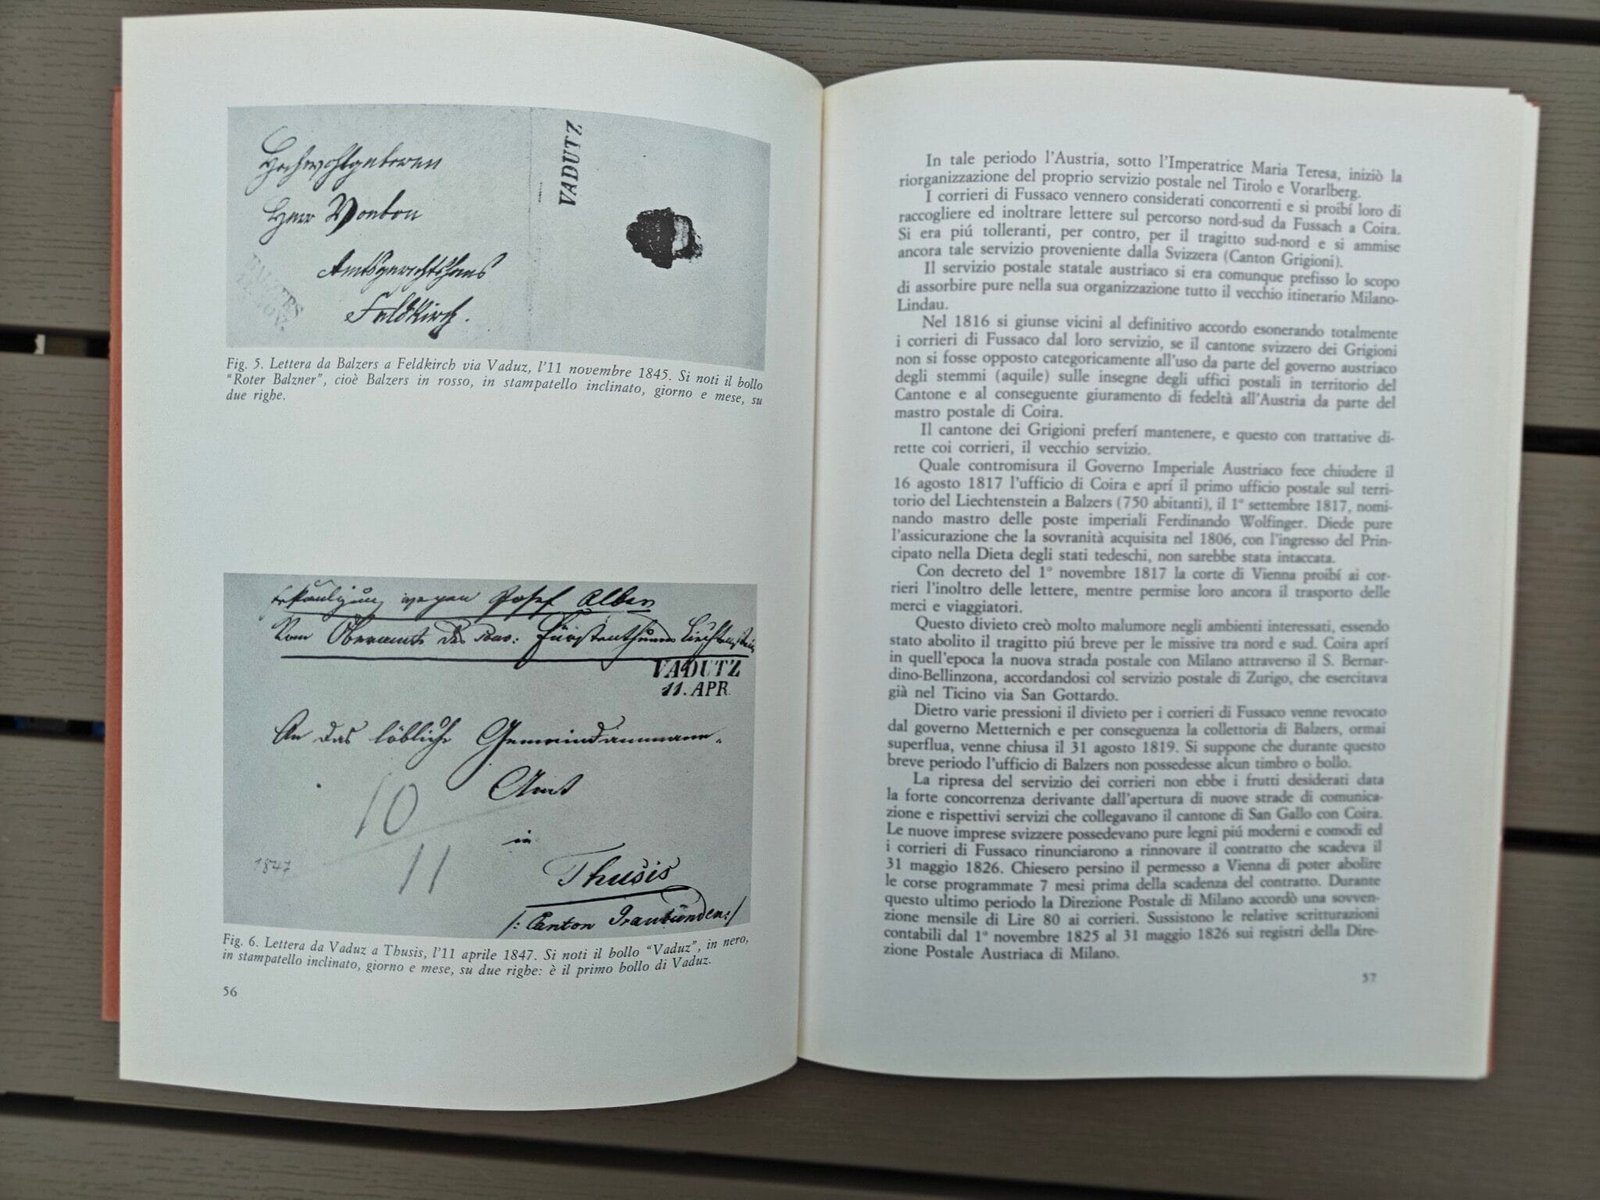 Hochwohlgeboren
Herr Vonbon
Amtsgerichtshaus
Feldkirch.
VADUTZ
BALZERS
11. NOV.
Fig. 5. Lettera da Balzers a Feldkirch via Vaduz, l'11 novembre 1845. Si noti il bollo
"Roter Balzner", cioè Balzers in rosso, in stampatello inclinato, giorno e mese, su
due righe.
wegen Josef Alben
Vom Oberamte des Fürstenthums Liechtenstein
VADUTZ
11. APR.
An das löbliche Gemeindammann-
Amt
in
Thusis
/: Canton Graubünden:/
10
11
1847
Fig. 6. Lettera da Vaduz a Thusis, l'11 aprile 1847. Si noti il bollo "Vaduz", in nero,
in stampatello inclinato, giorno e mese, su due righe: è il primo bollo di Vaduz.
56
In tale periodo l'Austria, sotto l'Imperatrice Maria Teresa, iniziò la
riorganizzazione del proprio servizio postale nel Tirolo e Vorarlberg.
I corrieri di Fussaco vennero considerati concorrenti e si proibí loro di
raccogliere ed inoltrare lettere sul percorso nord-sud da Fussach a Coira.
Si era piú tolleranti, per contro, per il tragitto sud-nord e si ammise
ancora tale servizio proveniente dalla Svizzera (Canton Grigioni).
Il servizio postale statale austriaco si era comunque prefisso lo scopo
di assorbire pure nella sua organizzazione tutto il vecchio itinerario Milano-
Lindau.
Nel 1816 si giunse vicini al definitivo accordo esonerando totalmente
i corrieri di Fussaco dal loro servizio, se il cantone svizzero dei Grigioni
non si fosse opposto categoricamente all'uso da parte del governo austriaco
degli stemmi (aquile) sulle insegne degli uffici postali in territorio del
Cantone e al conseguente giuramento di fedeltà all'Austria da parte del
mastro postale di Coira.
Il cantone dei Grigioni preferí mantenere, e questo con trattative di-
rette coi corrieri, il vecchio servizio.
Quale contromisura il Governo Imperiale Austriaco fece chiudere il
16 agosto 1817 l'ufficio di Coira e aprí il primo ufficio postale sul terri-
torio del Liechtenstein a Balzers (750 abitanti), il 1° settembre 1817, nomi-
nando mastro delle poste imperiali Ferdinando Wolfinger. Diede pure
l'assicurazione che la sovranità acquisita nel 1806, con l'ingresso del Prin-
cipato nella Dieta degli stati tedeschi, non sarebbe stata intaccata.
Con decreto del 1° novembre 1817 la corte di Vienna proibí ai cor-
rieri l'inoltro delle lettere, mentre permise loro ancora il trasporto delle
merci e viaggiatori.
Questo divieto creò molto malumore negli ambienti interessati, essendo
stato abolito il tragitto piú breve per le missive tra nord e sud. Coira aprí
in quell'epoca la nuova strada postale con Milano attraverso il S. Bernar-
dino-Bellinzona, accordandosi col servizio postale di Zurigo, che esercitava
già nel Ticino via San Gottardo.
Dietro varie pressioni il divieto per i corrieri di Fussaco venne revocato
dal governo Metternich e per conseguenza la collettoria di Balzers, ormai
superflua, venne chiusa il 31 agosto 1819. Si suppone che durante questo
breve periodo l'ufficio di Balzers non possedesse alcun timbro o bollo.
La ripresa del servizio dei corrieri non ebbe i frutti desiderati data
la forte concorrenza derivante dall'apertura di nuove strade di comunica-
zione e rispettivi servizi che collegavano il cantone di San Gallo con Coira.
Le nuove imprese svizzere possedevano pure legni piú moderni e comodi ed
i corrieri di Fussaco rinunciarono a rinnovare il contratto che scadeva il
31 maggio 1826. Chiesero persino il permesso a Vienna di poter abolire
le corse programmate 7 mesi prima della scadenza del contratto. Durante
questo ultimo periodo la Direzione Postale di Milano accordò una sovven-
zione mensile di Lire 80 ai corrieri. Sussistono le relative scritturazioni
contabili dal 1° novembre 1825 al 31 maggio 1826 sui registri della Dire-
zione Postale Austriaca di Milano.
57